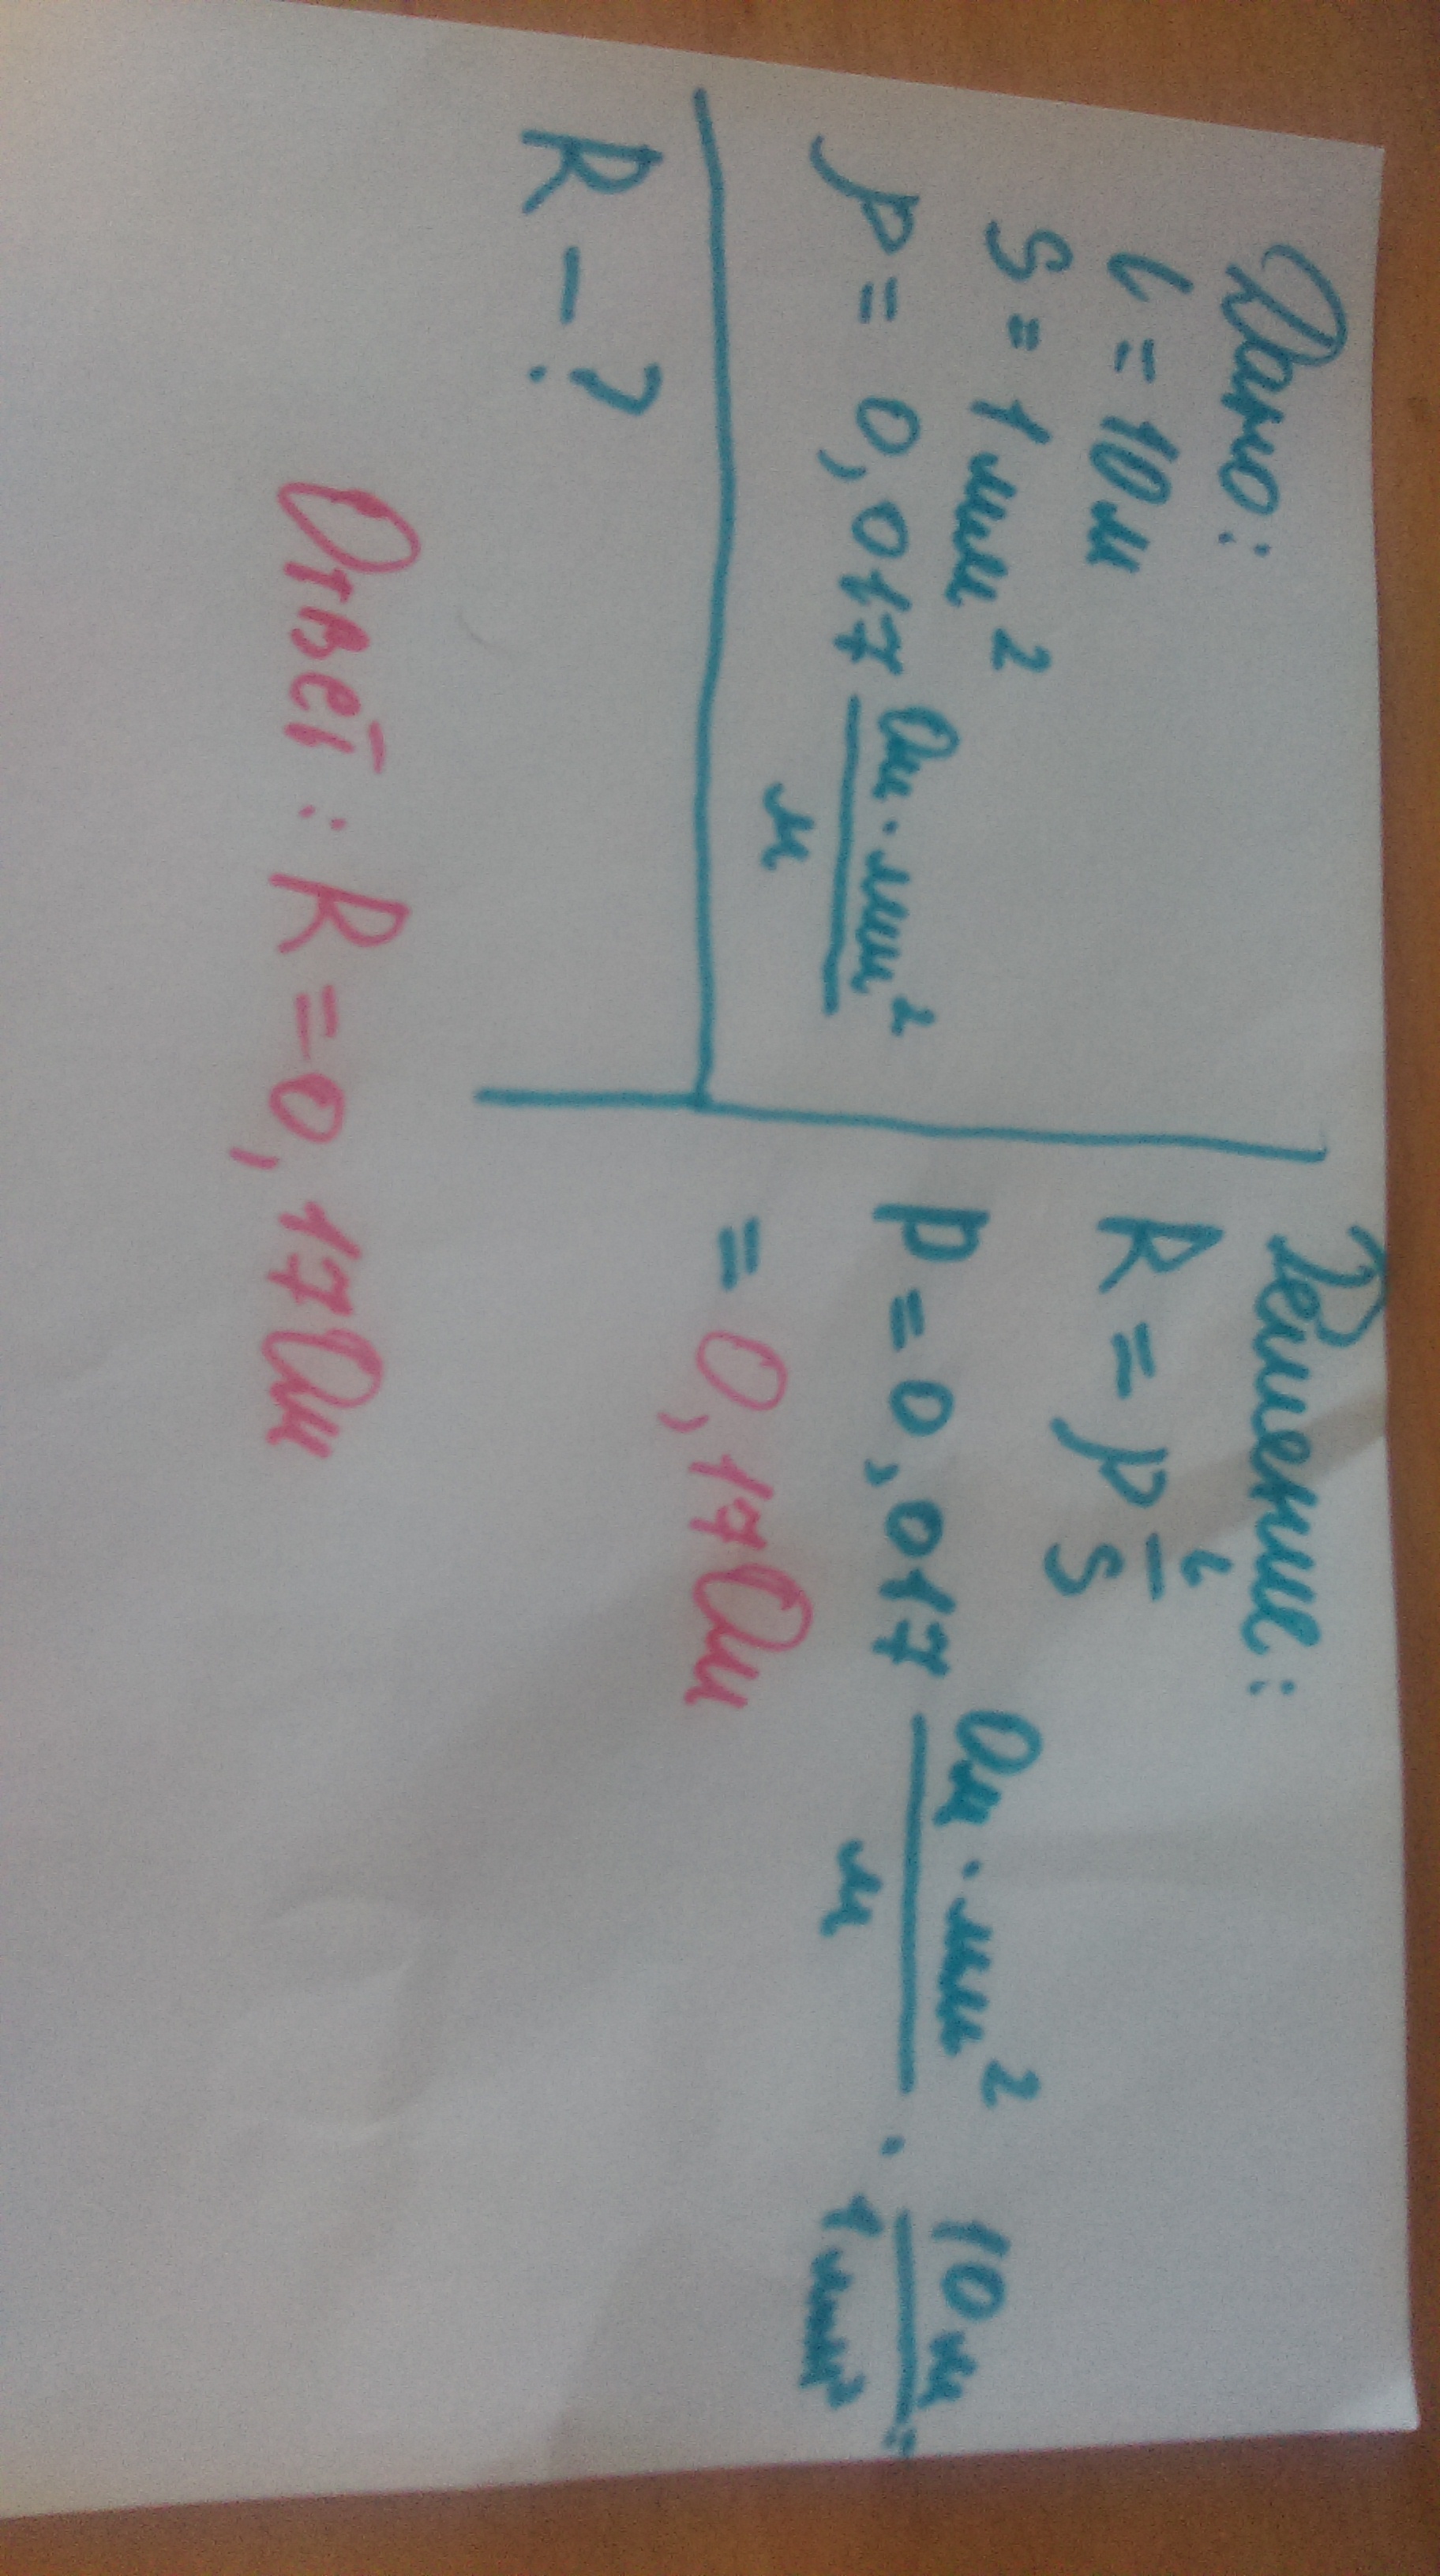 Дано:
l = 10м
S = 1 мм²
ρ = 0,017 Ом·мм²/м
R – ?
Решение:
R = ρ l/S
P = 0,017 Ом·мм²/м · 10м/1мм² =
= 0,17Ом
Ответ: R = 0,17Ом